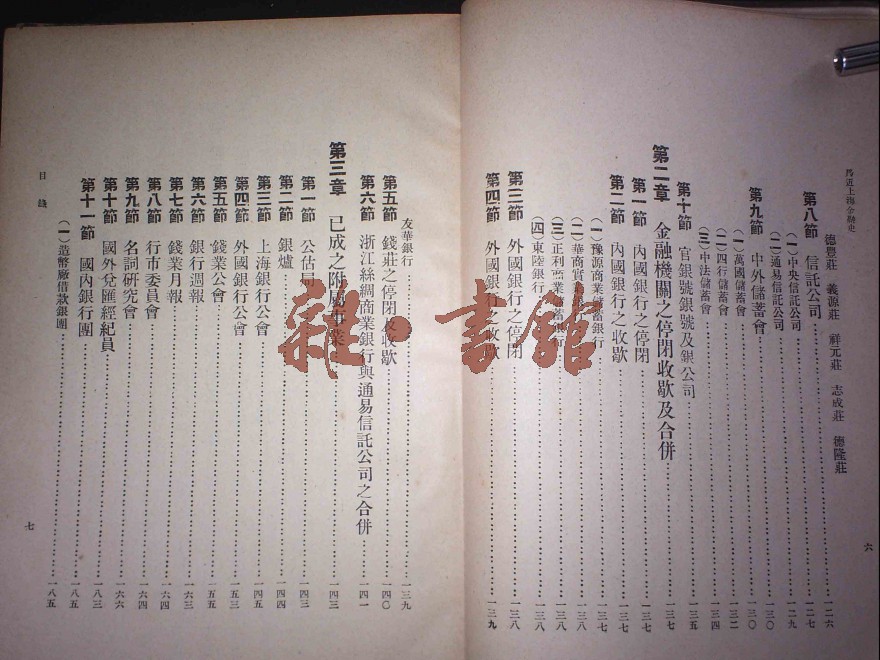 最近上海金融史
德豐莊 義源莊 祥元莊 志成莊 德隆莊 一二六
第八節 信託公司 一二七
(一)中央信託公司 一二九
(二)通易信託公司 一三〇
第九節 中外儲蓄會 一三〇
(一)萬國儲蓄會 一三二
(二)四行儲蓄會 一三四
(三)中法儲蓄會
第十節 官銀號銀號及銀公司 一三五
第二章 金融機關之停閉收歇及合併 一三七
第一節 內國銀行之停閉 一三七
第二節 內國銀行之收歇 一三七
(一)豫源商業儲蓄銀行 一三七
(二)華商實業銀行 一三八
(三)正利商業儲蓄銀行 一三八
(四)東陸銀行 一三八
第三節 外國銀行之停閉 一三八
第四節 外國銀行之收歇 一三九
六
友華銀行 一三九
第五節 錢莊之停閉收歇 一四〇
第六節 浙江絲綢商業銀行與通易信託公司之合併 一四一
第三章 已成之附屬事業 一四三
第一節 公估局 一四三
第二節 銀爐 一四四
第三節 上海銀行公會 一四五
第四節 外國銀行公會 一五三
第五節 錢業公會 一五五
第六節 銀行週報 一六三
第七節 錢業月報 一六四
第八節 行市委員會 一六四
第九節 名詞研究會 一六六
第十節 國外兌匯經紀員 一八三
第十一節 國內銀行團 一八五
(一)造幣廠借款銀團 一八五
目錄
七
雜·書館